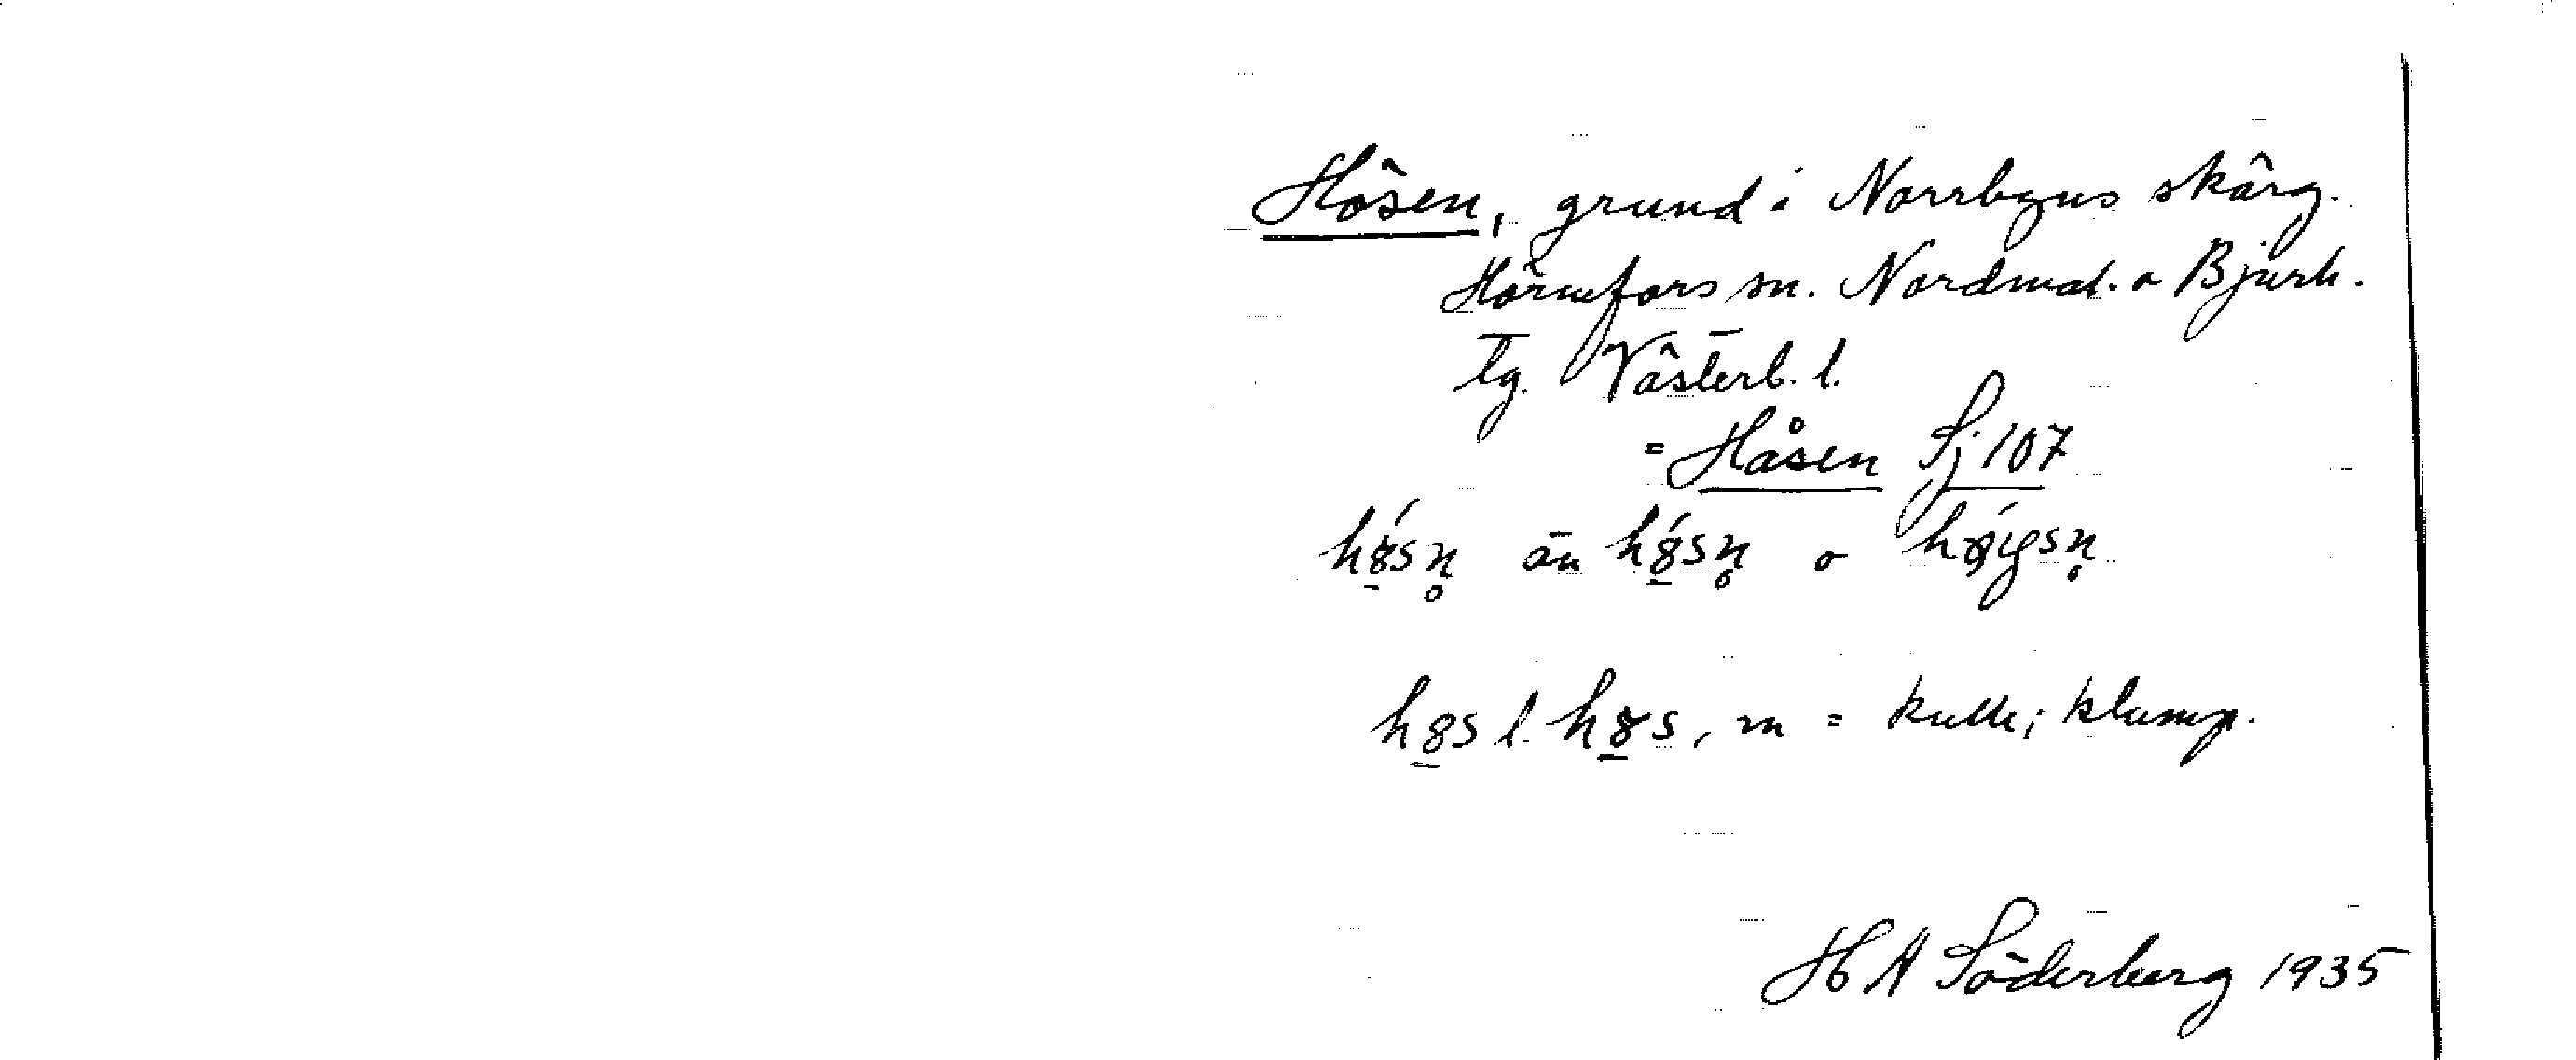 Hösen, grund i Norrbyns skärg.
Hörnefors sn. Nordmal. o Bjurh.
tg. Västerb. l.
= Håsen Sj 107
än o
l. m = kulle; klump.
H A Söderberg 1935